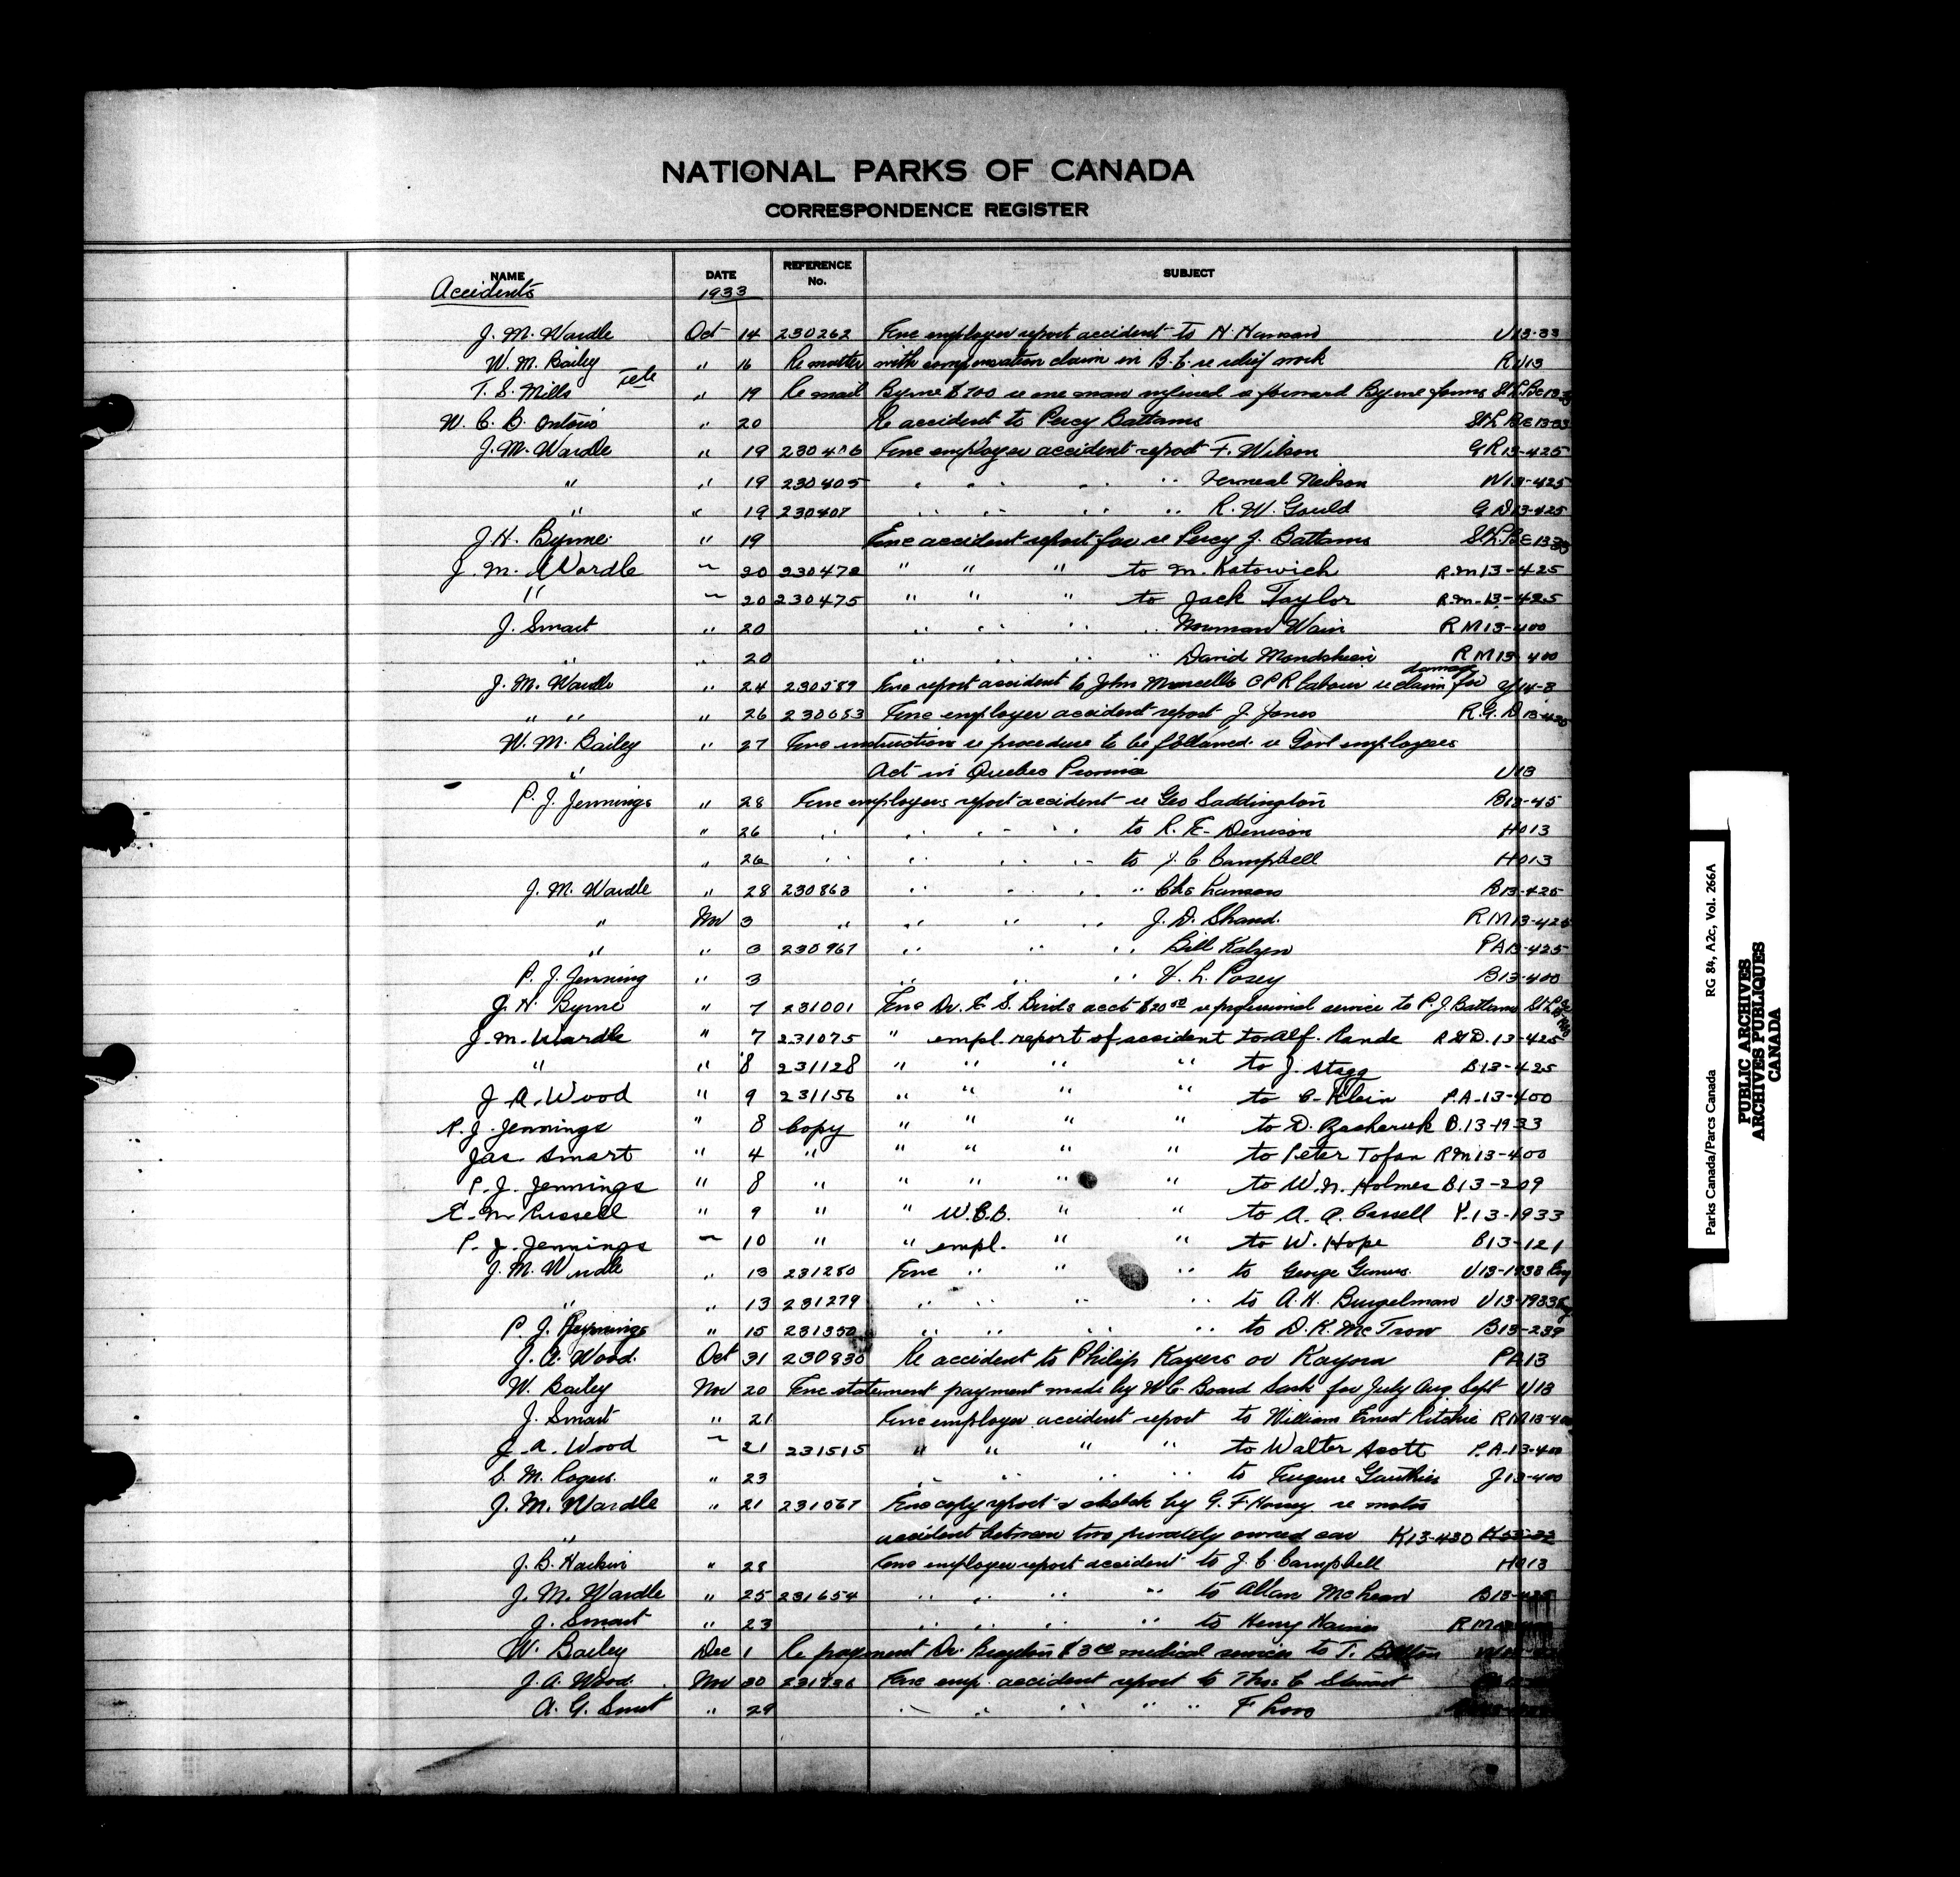 NATIONAL PARKS OF CANADA
CORRESPONDENCE REGISTER
NAME DATE REFERENCE No. SUBJECT
Accidents 1933
J. M. Wardle Oct 14 230262 Enc employer report accident to H. Hanson U13-33
W. M. Bailey " 16 Re matter with compensation claim in B.C. re relief work RU13
T. S. Mills Tele " 19 Re mail Byrne $700 re one man injured & forward Byrne forms St.L.BE13-33
W. C. B. Ontario " 20 Re accident to Percy Battams St.L BE13-33
J. M. Wardle " 19 230406 Enc employer accident report F. Wilson GR13-425
" " 19 230405 " " " " Neilson W13-425
" " 19 230407 " " " " R. W. Gould GD13-425
J. H. Byrne " 19 Enc accident report for re Percy J. Battams St.L.BE1333
J. M. Wardle " 20 230472 " " " to M. Katowich R.M13-425
" " 20 230475 " " " to Jack Taylor R.M.13-425
J. Smart " 20 " " " " Norman Wain RM13-400
" " 20 " " " " David Mondshein RM13-400
J. M. Wardle " 24 230589 Enc report accident to John Marcello CPR labourer re claim for damage Y14-8
" " " 26 230653 Enc employer accident report J. Jones R.G.D13-425
W. M. Bailey " 27 Enc instructions re procedure to be followed re Govt employees
" Act in Quebec Province U13
P. J. Jennings " 28 Enc employers report accident re Geo Saddington B13-45
" 26 " " " " to R. E. Denison HO13
" 26 " " " " to J. C. Campbell HO13
J. M. Wardle " 28 230863 " " " " Chs Lanson B13-425
" Nov 3 " " " " J. D. Shand. RM13-425
" " 3 230967 " " " Bill Kalzen PA13-425
P. J. Jenning " 3 " " V. L. Posey B13-400
J. H. Byrne " 7 231001 Enc Dr. E. S. Birds acct $20.00 re professional service to P. J. Battams St.L
J. M. Wardle " 7 231075 " empl. report of accident to Alf. Rande R.G.D.13-425
" " 8 231128 " " " " to J. Stagg B13-425
J. A. Wood " 9 231156 " " " " to C. Klein P.A.13-400
P. J. Jennings " 8 Copy " " " " to D. Zacharuk B.13-1933
Jas Smart " 4 " " " " " to Peter Tofan RM13-400
P. J. Jennings " 8 " " " " " to W. N. Holmes B13-209
E. M. Russell " 9 " " W.C.B. " " to A. A. Cassell Y-13-1933
P. J. Jennings " 10 " " empl. " " to W. Hope B13-121
J. M. Wardle " 13 231280 Enc " " " to George U13-1933 Eng
" " 13 231279 " " " " to A. H. Burgelman U13-1933 Eng
P. J. Jennings " 15 231350 " " " " to D. K. McTrow B13-239
J. A. Wood. Oct 31 230830 Re accident to Philip Kayers or Kayorn PA13
W. Bailey Nov 20 Enc statement payment made by W.C. Board Sask for July Aug Sept U13
J. Smart " 21 Enc employer accident report to William Ernest Ritchie RM13-400
J. A. Wood " 21 231515 " " " " to Walter Scott P.A.13-400
S. M. Rogers. " 23 " " " " to Eugene Gauthier J13-400
J. M. Wardle " 21 231067 Enc copy report & sketch by G. F. Horsey re motor
" accident between two privately owned car K13-430 K55-22
J. B. Harkin " 28 Enc employer report accident to J. C. Campbell HO13
J. M. Wardle " 25 231654 " " " " to Allan McLean B13-425
J. Smart " 23 " " " " to Henry Haines RM
W. Bailey Dec 1 Re payment Dr. $3.00 medical services to T.
J. A. Wood. Nov 30 231736 Enc emp. accident report to Thos C Stewart
A. G. Smut " 29 " " " " " F Loro
Parks Canada/Parcs Canada RG 84, A2c, Vol. 266A
PUBLIC ARCHIVES
ARCHIVES PUBLIQUES
CANADA